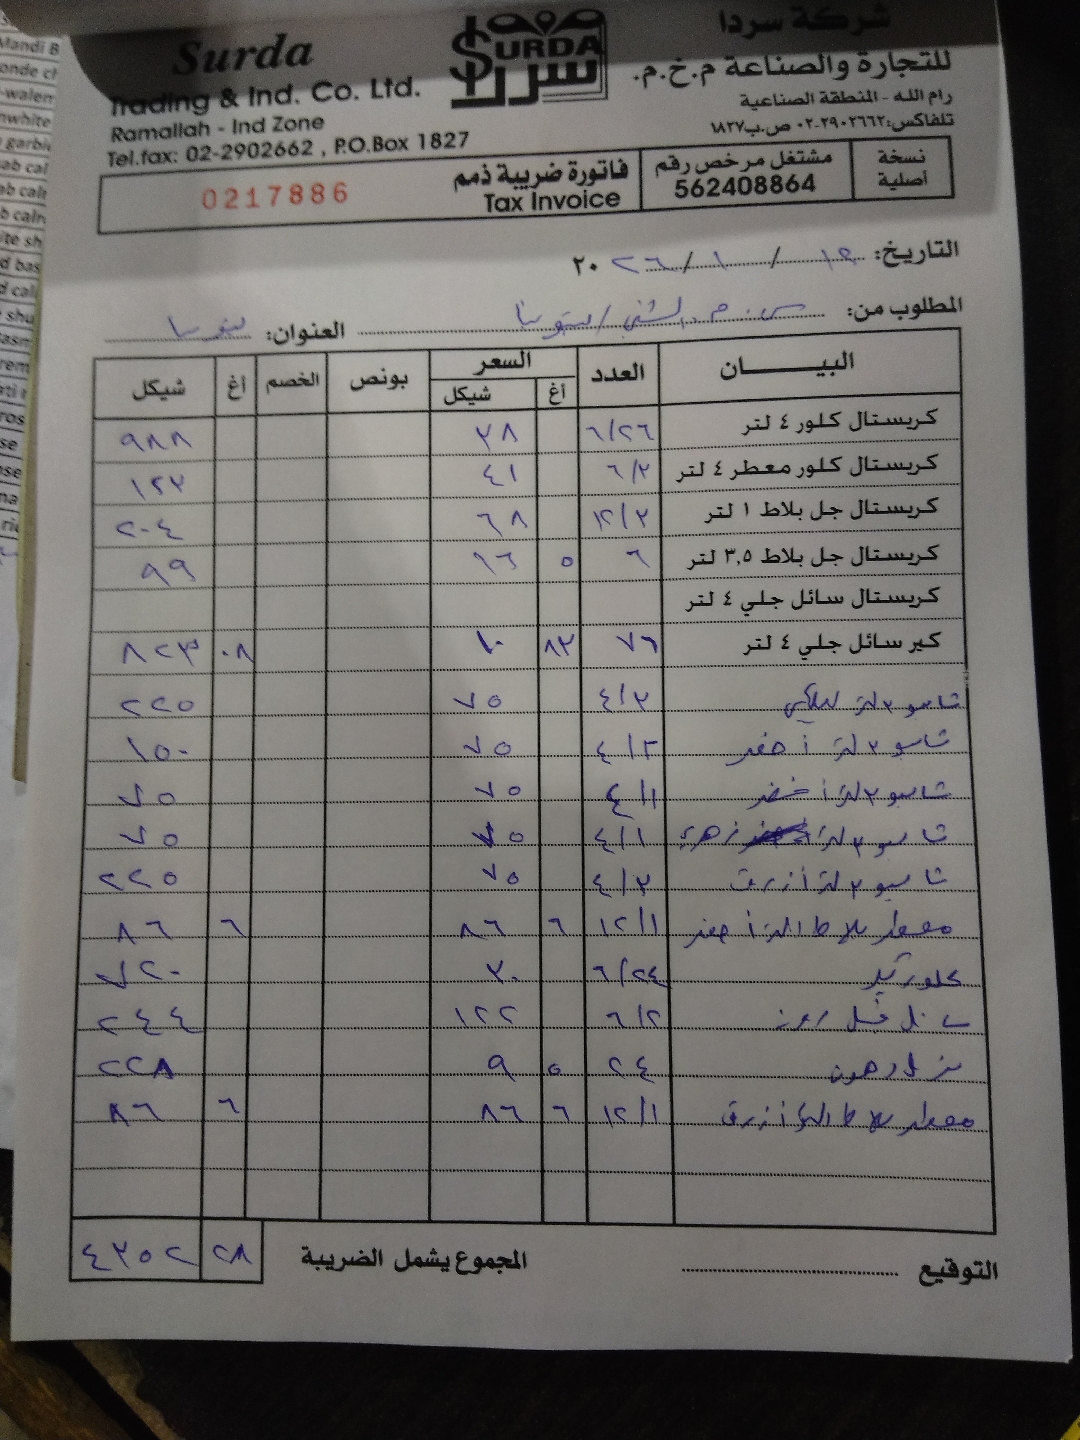 Surda
Trading & Ind. Co. Ltd.
Ramallah - Ind Zone
Tel.fax: 02-2902662 , P.O.Box 1827
SURDA
سردا
شركة سردا
للتجارة والصناعة م.خ.م.
رام الله - المنطقة الصناعية
تلفاكس:٢٩٠٢٦٦٢-٠٢ ص.ب١٨٢٧
نسخة أصلية
مشتغل مرخص رقم 562408864
فاتورة ضريبة ذمم Tax Invoice
0217886
التاريخ: / ١ / ٢٠٢٦
المطلوب من: العنوان:
البيـــــــان العدد السعر بونص الخصم أغ شيكل
أغ شيكل
كريستال كلور ٤ لتر ٦/٢٦ ٣٨ ٩٨٨
كريستال كلور معطر ٤ لتر ٦/٣ ٤١ ١٢٣
كريستال جل بلاط ١ لتر ١٢/٣ ٦٨ ٢٠٤
كريستال جل بلاط ٣,٥ لتر ٦ ٥ ١٦ ٩٩
كريستال سائل جلي ٤ لتر
كير سائل جلي ٤ لتر ٧٦ ٨٣ ١٠ ٠٨ ٨٢٣
شاسو ٣ لتر ٤/٣ ٧٥ ٢٢٥
شاسو ٣ لتر أصفر ٤/٢ ٧٥ ١٥٠
شاسو ٣ لتر أخضر ٤/١ ٧٥ ٧٥
شاسو ٣ لتر زهري ٤/١ ٧٥ ٧٥
شاسو ٣ لتر أزرق ٤/٣ ٧٥ ٢٢٥
معطر بلاط ١ لتر أصفر ١٢/١ ٦ ٨٦ ٦ ٨٦
كلور كير ٦/٢٤ ٣٠ ٧٢٠
سائل ٦/٢ ١٢٢ ٢٤٤
٢٤ ٥ ٩ ٢٢٨
معطر بلاط ١ لتر أزرق ١٢/١ ٦ ٨٦ ٦ ٨٦
التوقيع المجموع يشمل الضريبة ٢٨ ٤٣٥٢